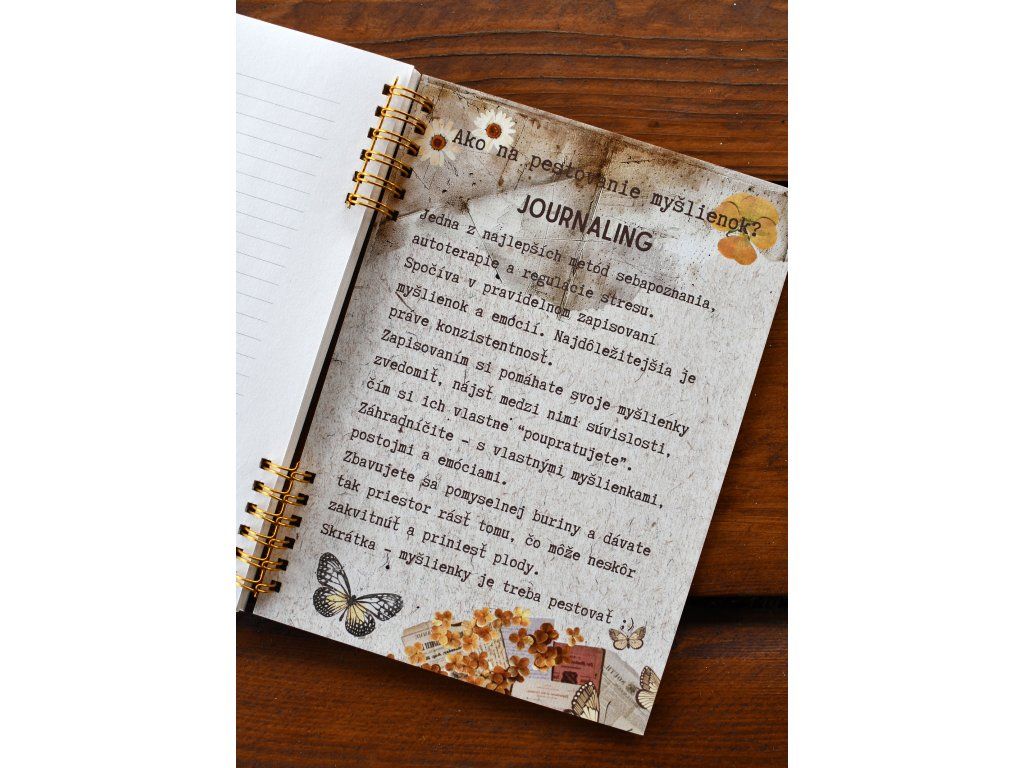 Ako na pestovanie myšlienok?
JOURNALING
Jedna z najlepších metód sebapoznania,
autoterapie a regulácie stresu.
Spočíva v pravidelnom zapisovaní
myšlienok a emócií. Najdôležitejšia je
práve konzistentnosť.
Zapisovaním si pomáhate svoje myšlienky
zvedomiť, nájsť medzi nimi súvislosti,
čím si ich vlastne “poupratujete”.
Záhradníčite - s vlastnými myšlienkami,
postojmi a emóciami.
Zbavujete sa pomyselnej buriny a dávate
tak priestor rásť tomu, čo môže neskôr
zakvitnúť a priniesť plody.
Skrátka - myšlienky je treba pestovať :)